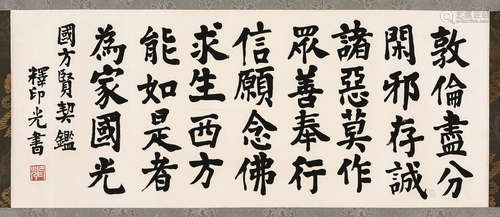 敦倫盡分
閑邪存誠
諸惡莫作
眾善奉行
信願念佛
求生西方
能如是者
為家國光
國方賢契鑑
釋印光書